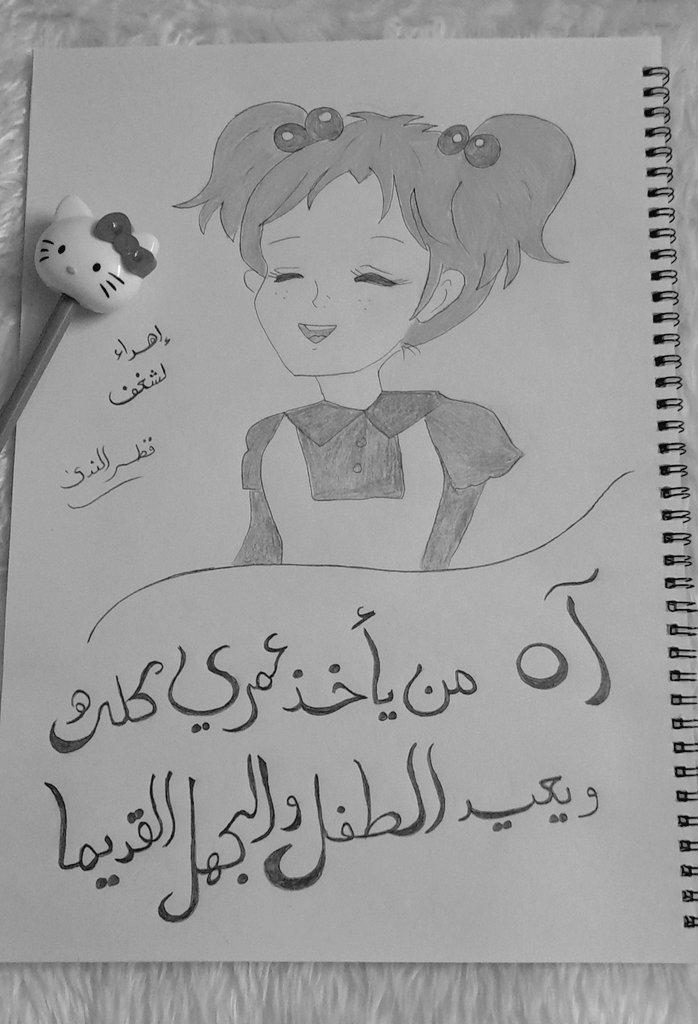 إهداء
لشغف
قطر الندى
آه من يأخذ عمري كله
ويعيد الطفل والجهل القديما